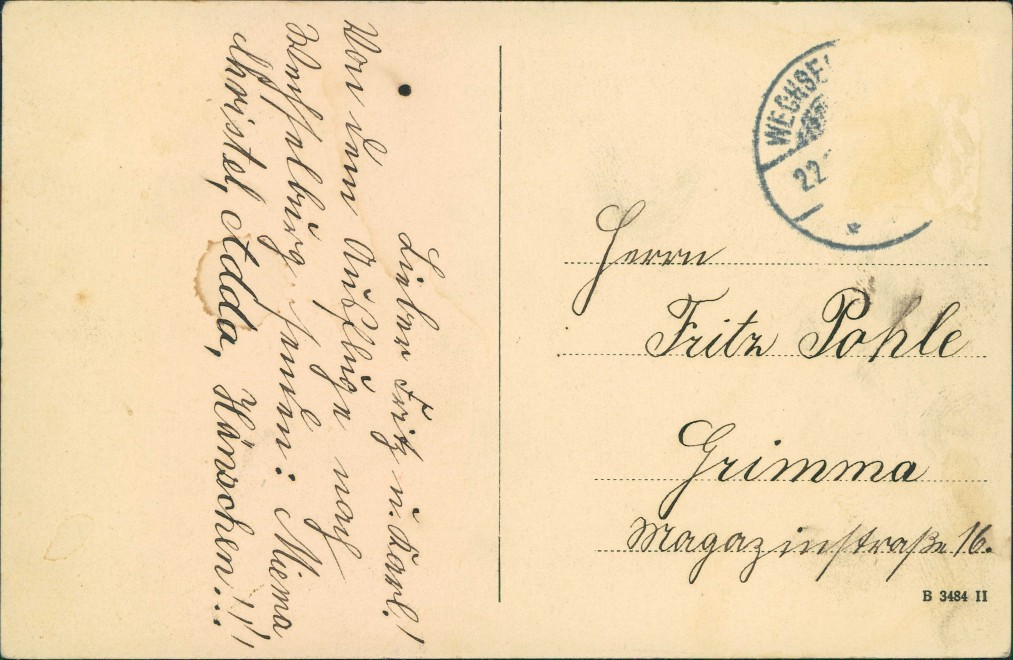 Lieber Fritz u. Karl!
Von dem Ausfluge nach
Wechselburg senden: Miema
Christel, Adda, Hänschen!!!...
WECHSE
22
Herrn
Fritz Pohle
Grimma
Magazinstraße 16.
B 3484 II